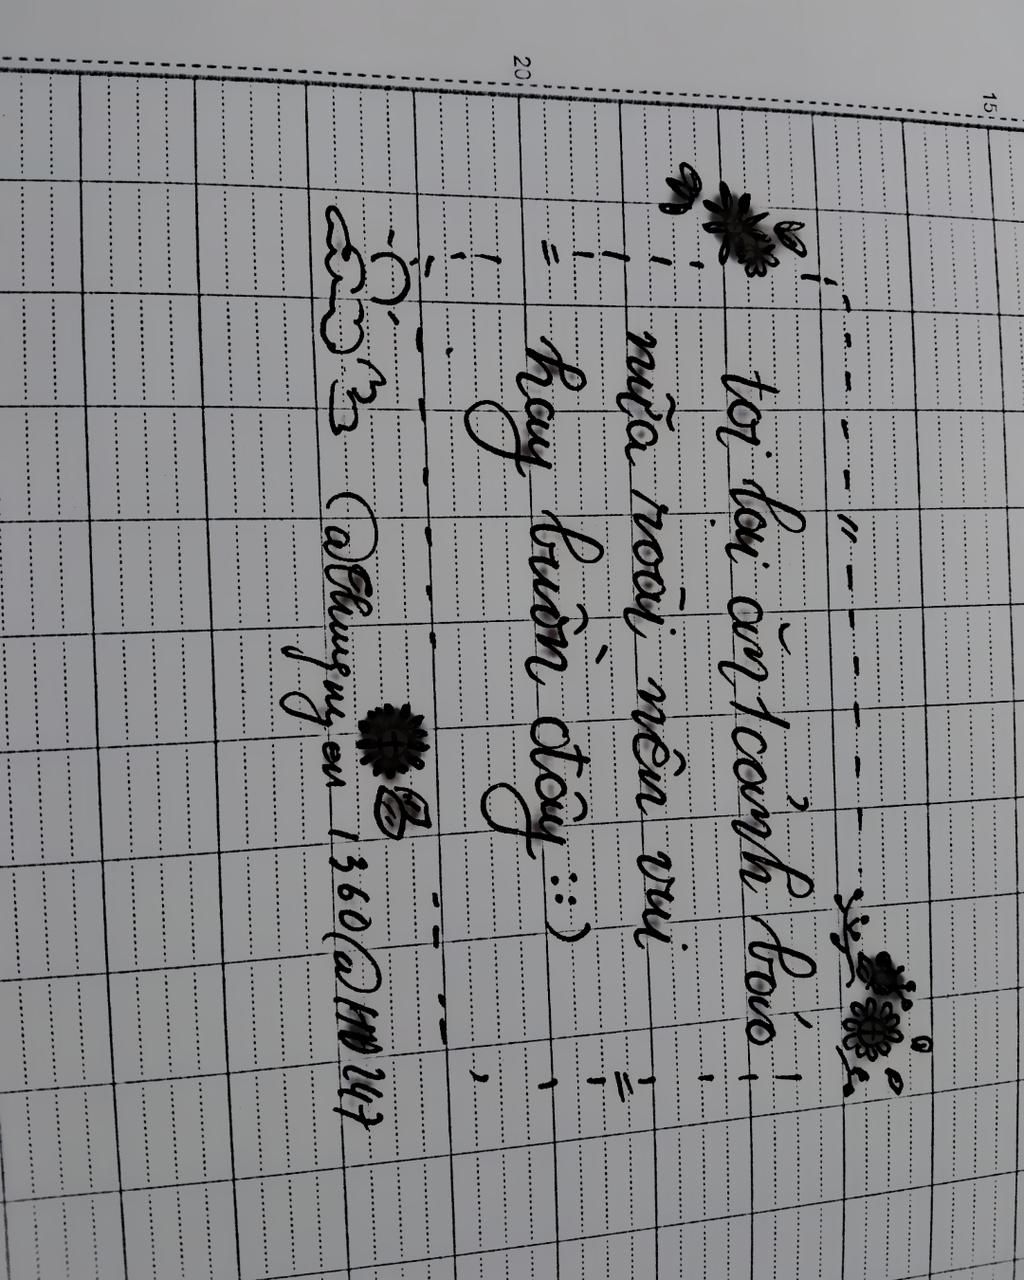 15
20
tôi lại ăn 1 cảnh báo
nữa rồi, nên vui
hay buồn đây ::)
@thuyny en 1360@HĐ247